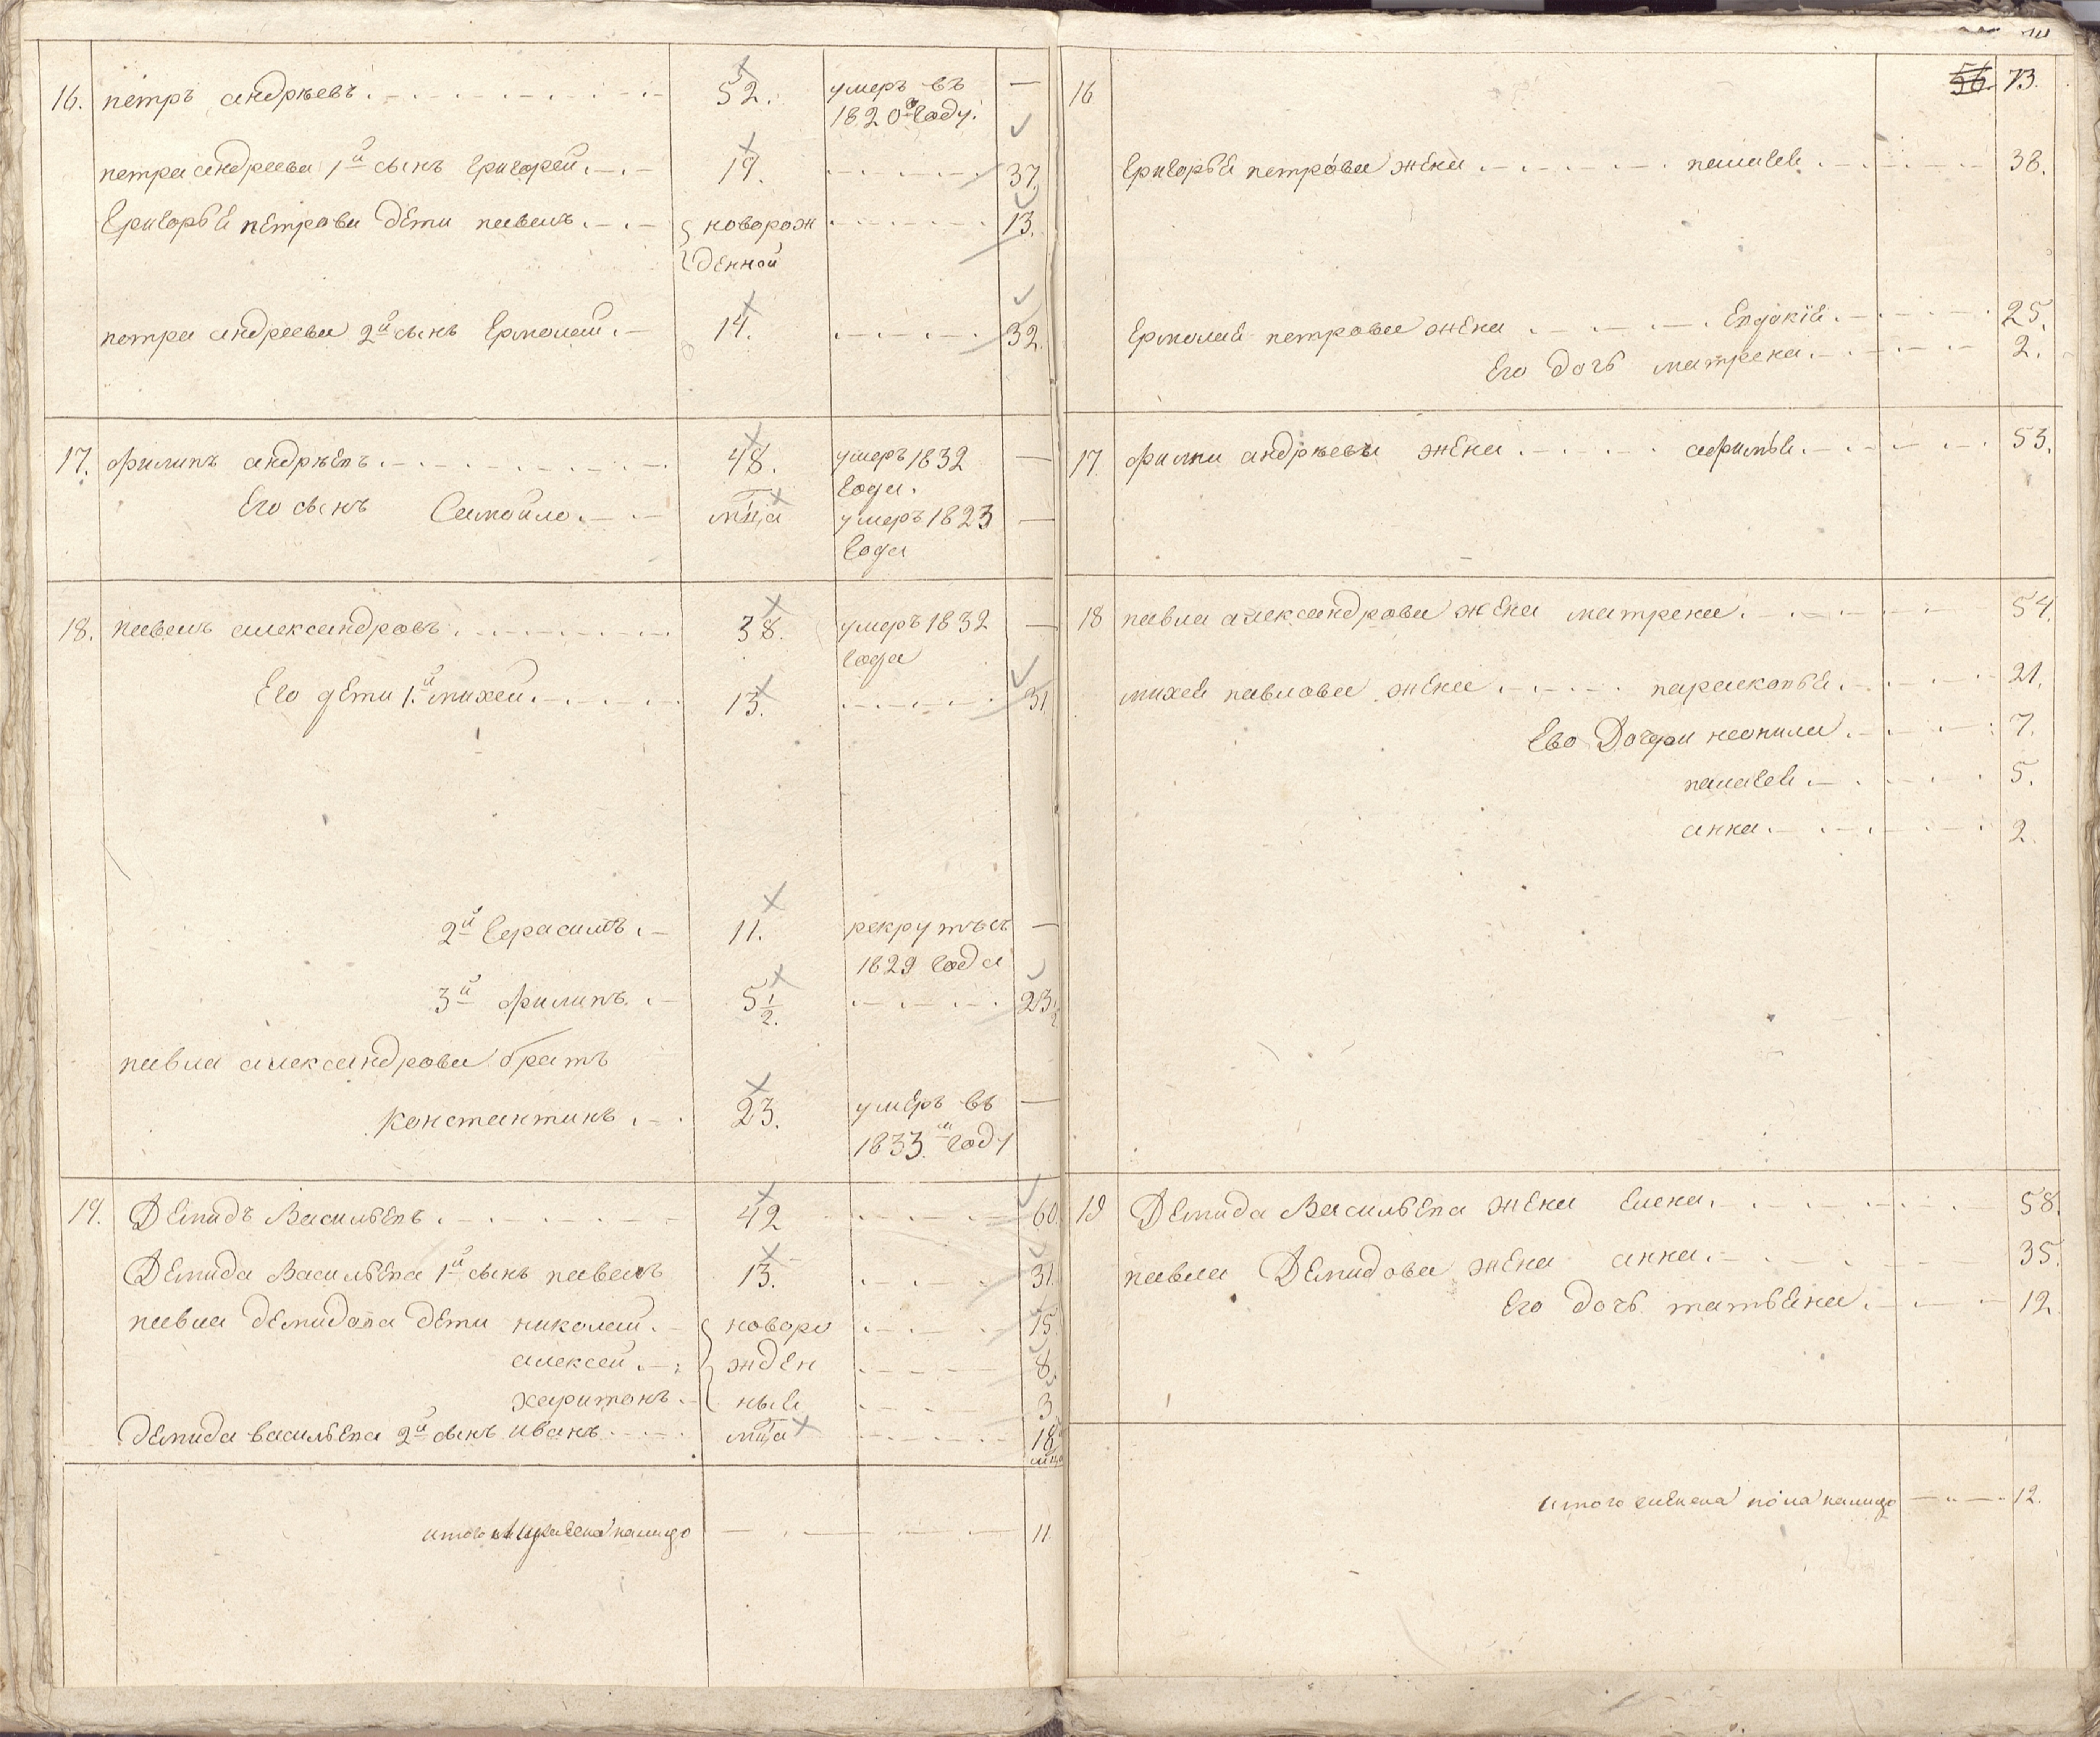 16. петръ андрѣевъ. 52. умеръ въ —
1820м году.
петра андреева 1й сынъ григорей. 19. 37.
григорья петрова дети павелъ. новорож 13.
денной
петра андреева 2й сынъ Ермолай. 14. 32.
17. филипъ андрѣевъ. 48. умеръ 1832 —
года.
Его сынъ Самойло. мца умеръ 1823 —
года
18. павелъ александровъ. 38. умеръ 1832 —
года
Его дети 1й михей. 13. 31.
2й герасимъ. 11. рекрутъ съ —
1829 года
3й филипъ. 5 1/2. 23 1/2
павла александрова братъ
константинъ. 23. умеръ въ —
1833м году
19. Демидъ Васильевъ. 42 60.
Демида Васильева 1й сынъ павелъ 13. 31.
павла демидова дети николай. новоро 15.
алексей. жден 8.
харитонъ. ныя 3.
демида васильева 2й сынъ иванъ мца 18
мца
итого налицо 11.
16 56. 73.
григорья петрова жена пелагея. 38.
Ермолая петрова жена Евдокія. 25.
Его дочь матрена. 2.
17 филипа андрѣева жена афимья. 53.
18 павла александрова жена матрена. 54.
михея павлова жена парасковья. 21.
Ево Дочери неонила. 7.
пелагея 5.
анна. 2.
19 Демида Васильева жена Елена. 58.
павла Демидова жена анна. 35.
Его дочь татьяна. 12
итого женска пола налицо 12.